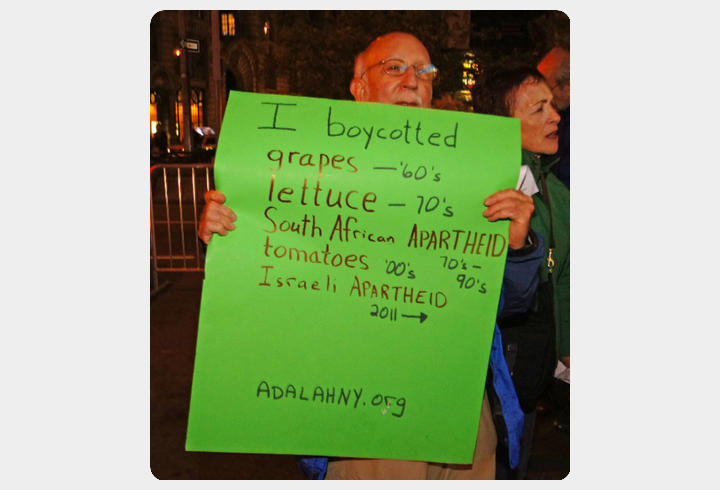 I boycotted
grapes — '60's
lettuce — 70's
South African APARTHEID
70's –
90's
tomatoes '00's
Israeli APARTHEID
2011 →
ADALAHNY.org